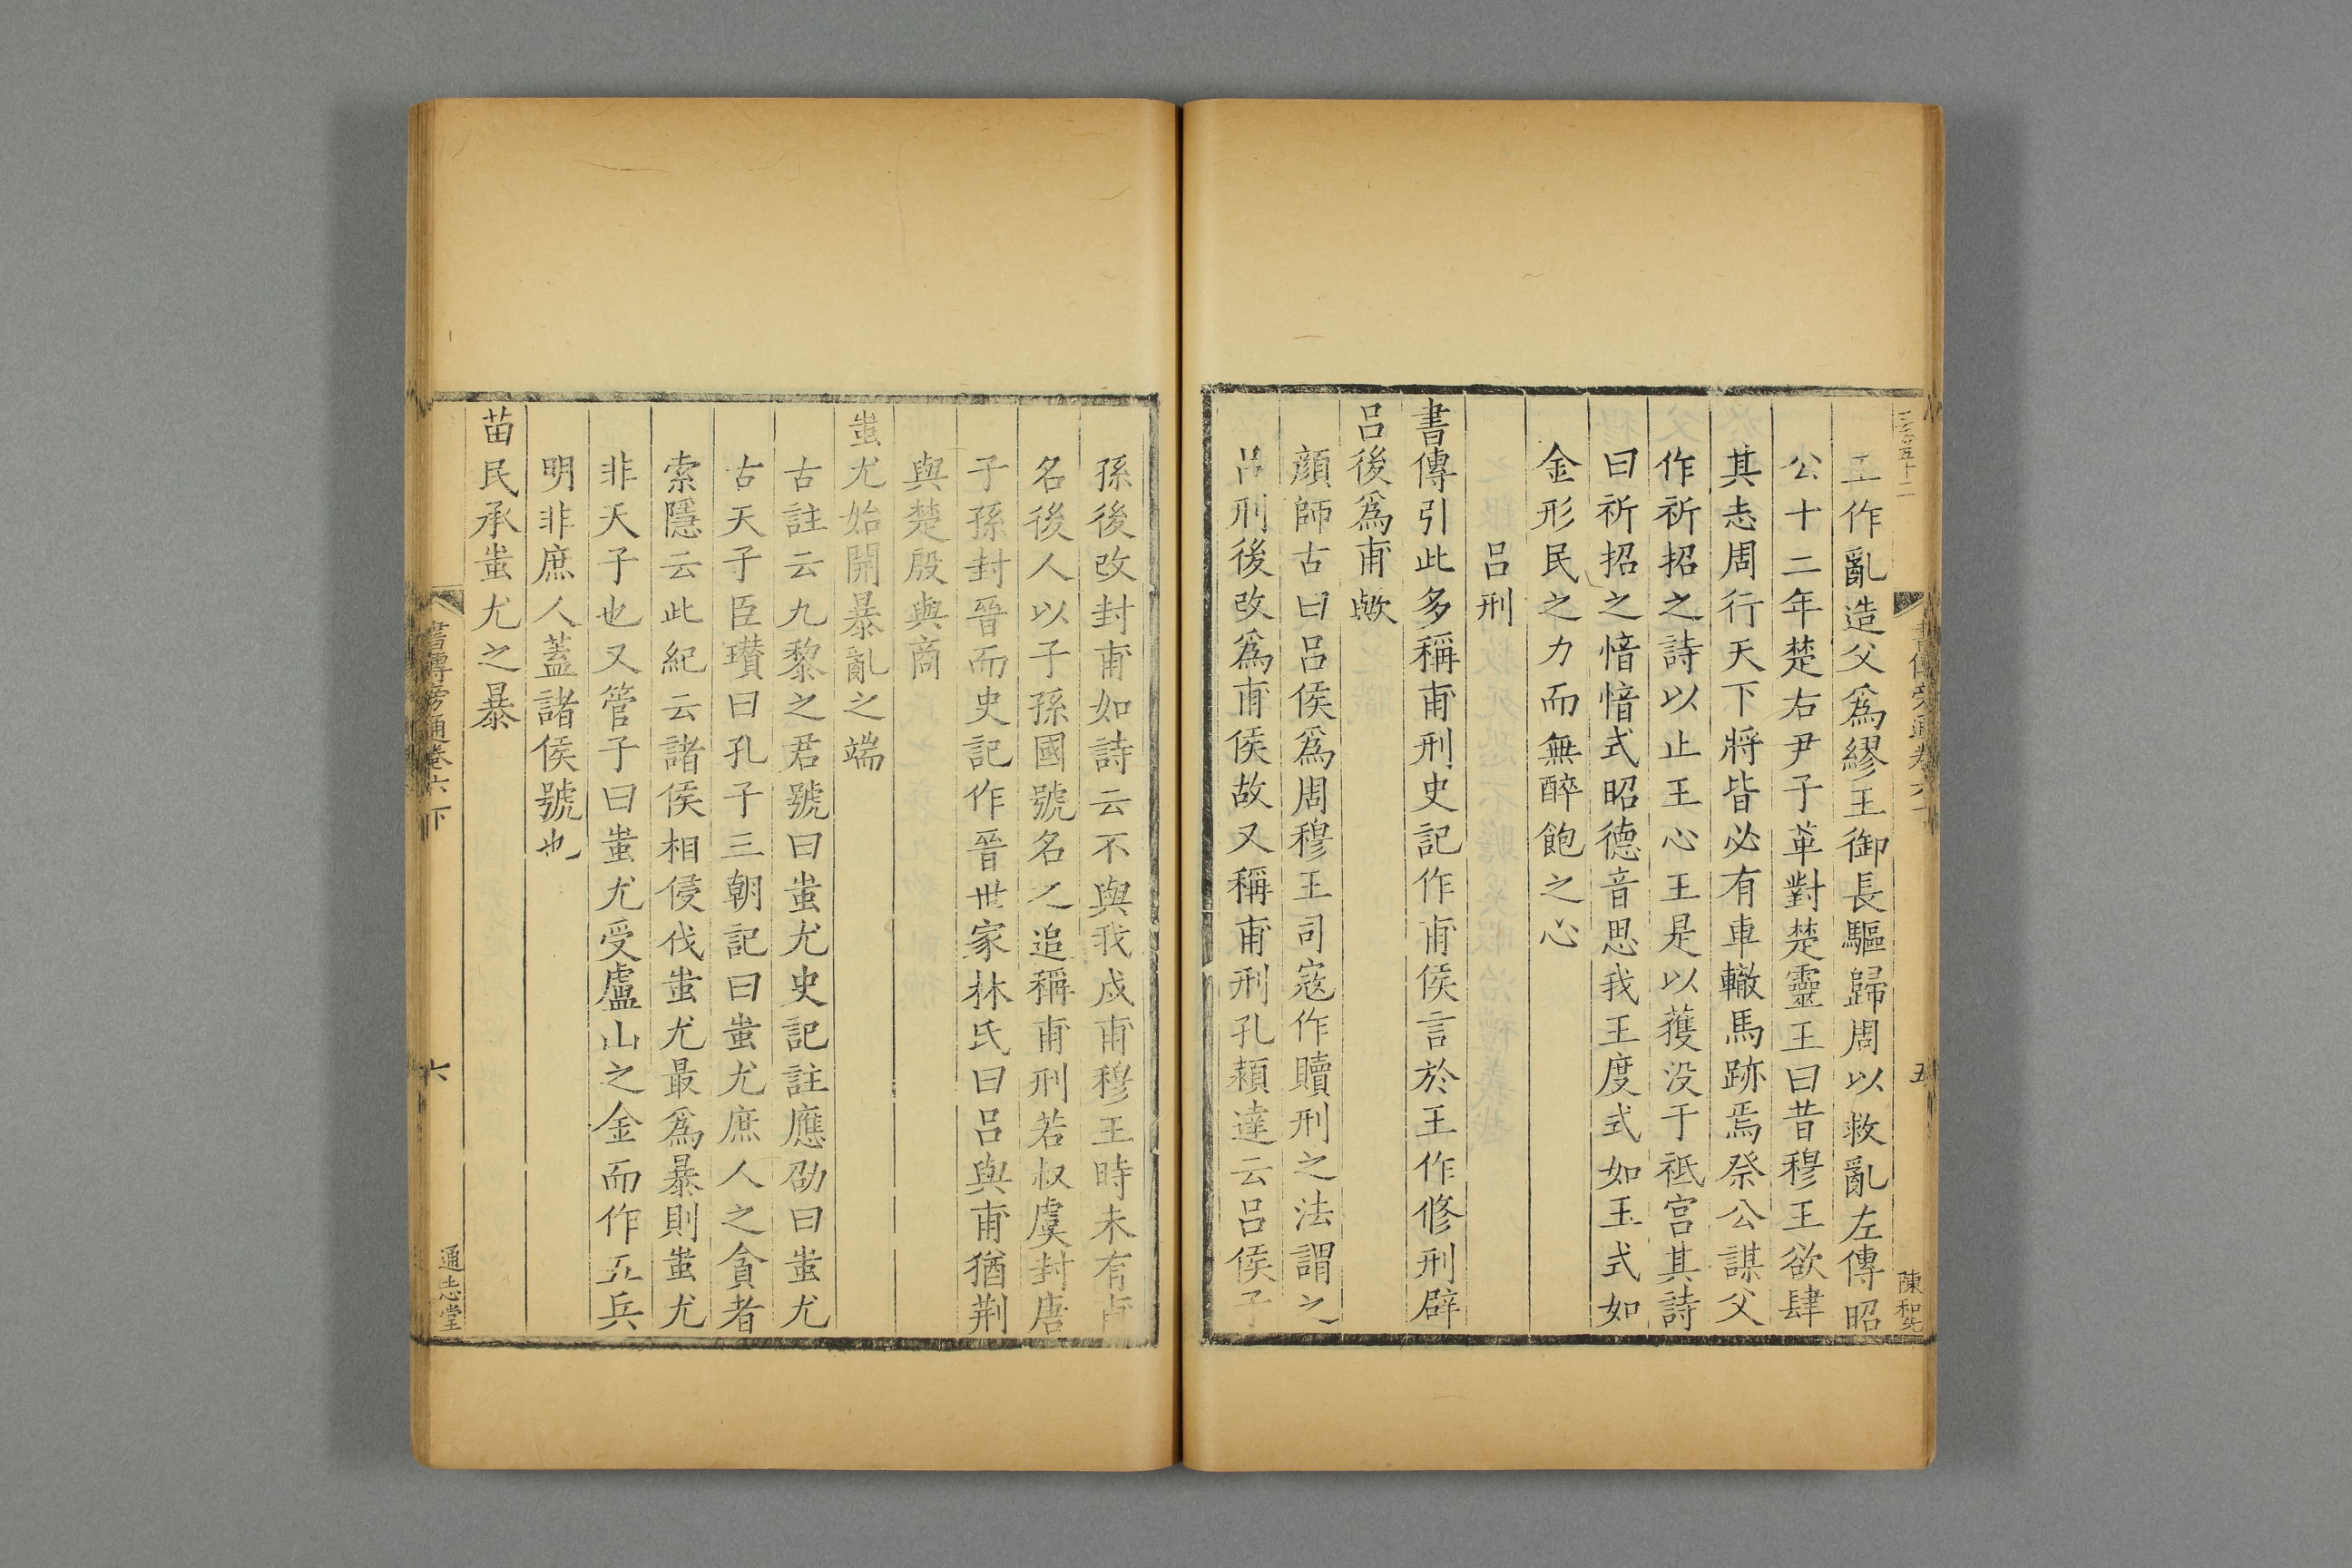 王作亂造父爲繆王御長驅歸周以救亂左傳昭
公十二年楚右尹子革對楚靈王曰昔穆王欲肆
其志周行天下將皆必有車轍馬跡焉祭公謀父
作祈招之詩以止王心王是以獲沒于祗宮其詩
曰祈招之愔愔式昭德音思我王度式如玉式如
金形民之力而無醉飽之心
吕刑
書傳引此多稱甫刑史記作甫侯言於王作修刑辟
吕後爲甫歟
顔師古曰吕侯爲周穆王司寇作贖刑之法謂之
吕刑後改爲甫侯故又稱甫刑孔頴達云吕侯子
孫後改封甫如詩云不與我戍甫穆王時未有
名後人以子孫國號名之追稱甫刑若叔虞封唐
子孫封晉而史記作晉世家林氏曰吕與甫猶荆
與楚殷與商
蚩尤始開暴亂之端
古註云九黎之君號曰蚩尤史記註應劭曰蚩尤
古天子臣瓚曰孔子三朝記曰蚩尤庶人之貪者
索隱云此紀云諸侯相侵伐蚩尤最爲暴則蚩尤
非天子也又管子曰蚩尤受盧山之金而作五兵
明非庶人蓋諸侯號也
苗民承蚩尤之暴
書傳旁通卷六下
六
通志堂
五